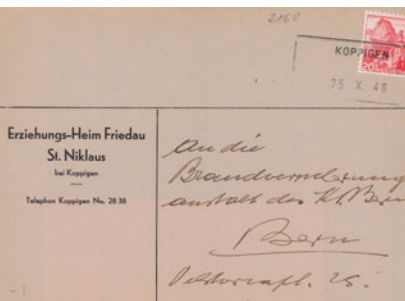 2168
KOPPIGEN
25. X. 48
20
Erziehungs-Heim Friedau
St. Niklaus
bei Koppigen
Telephon Koppigen No. 28 38
An die
Brandversicherung
anstalt des Kt. Bern
Bern